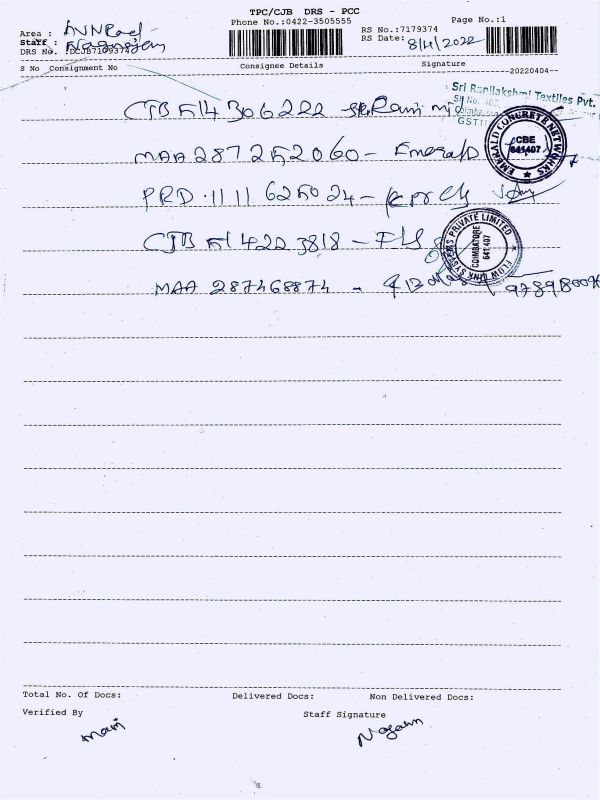 TPC/CJB DRS - PCC
Phone No.:0422-3505555
Page No.:1
Area :
Staff : Nagarajan
DRS No. :DCJB7109374
RS No.:7179374
RS Date: 8/4/2022
S No Consignment No Consignee Details Signature
--20220404--
CJB 514306222 -
Sri Ranilakshmi Textiles Pvt.
GSTI
MAA 287252060 - Emerald
EMERALD CONCRETE NETWORKS
CBE
641 407
PRD 1111 625024 -
CJB 514223818 - FLS
FLOW LINK SYSTEMS PRIVATE LIMITED
COIMBATORE
641 407
MAA 287468874 -
Total No. Of Docs: Delivered Docs: Non Delivered Docs:
Verified By Staff Signature
mani